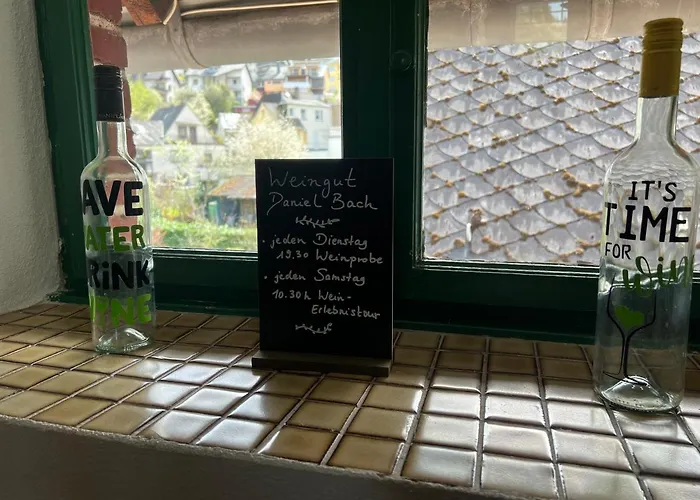 SAVE
WATER
DRINK
WINE
Weingut
Daniel Bach
• jeden Dienstag
19.30 Weinprobe
• jeden Samstag
10.30h Wein-
Erlebnistour
IT'S
TIME
FOR
Wine